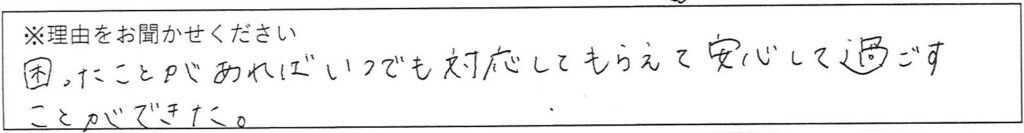 ※理由をお聞かせください
困ったことがあればいつでも対応してもらえて安心して過ごす
ことができた。